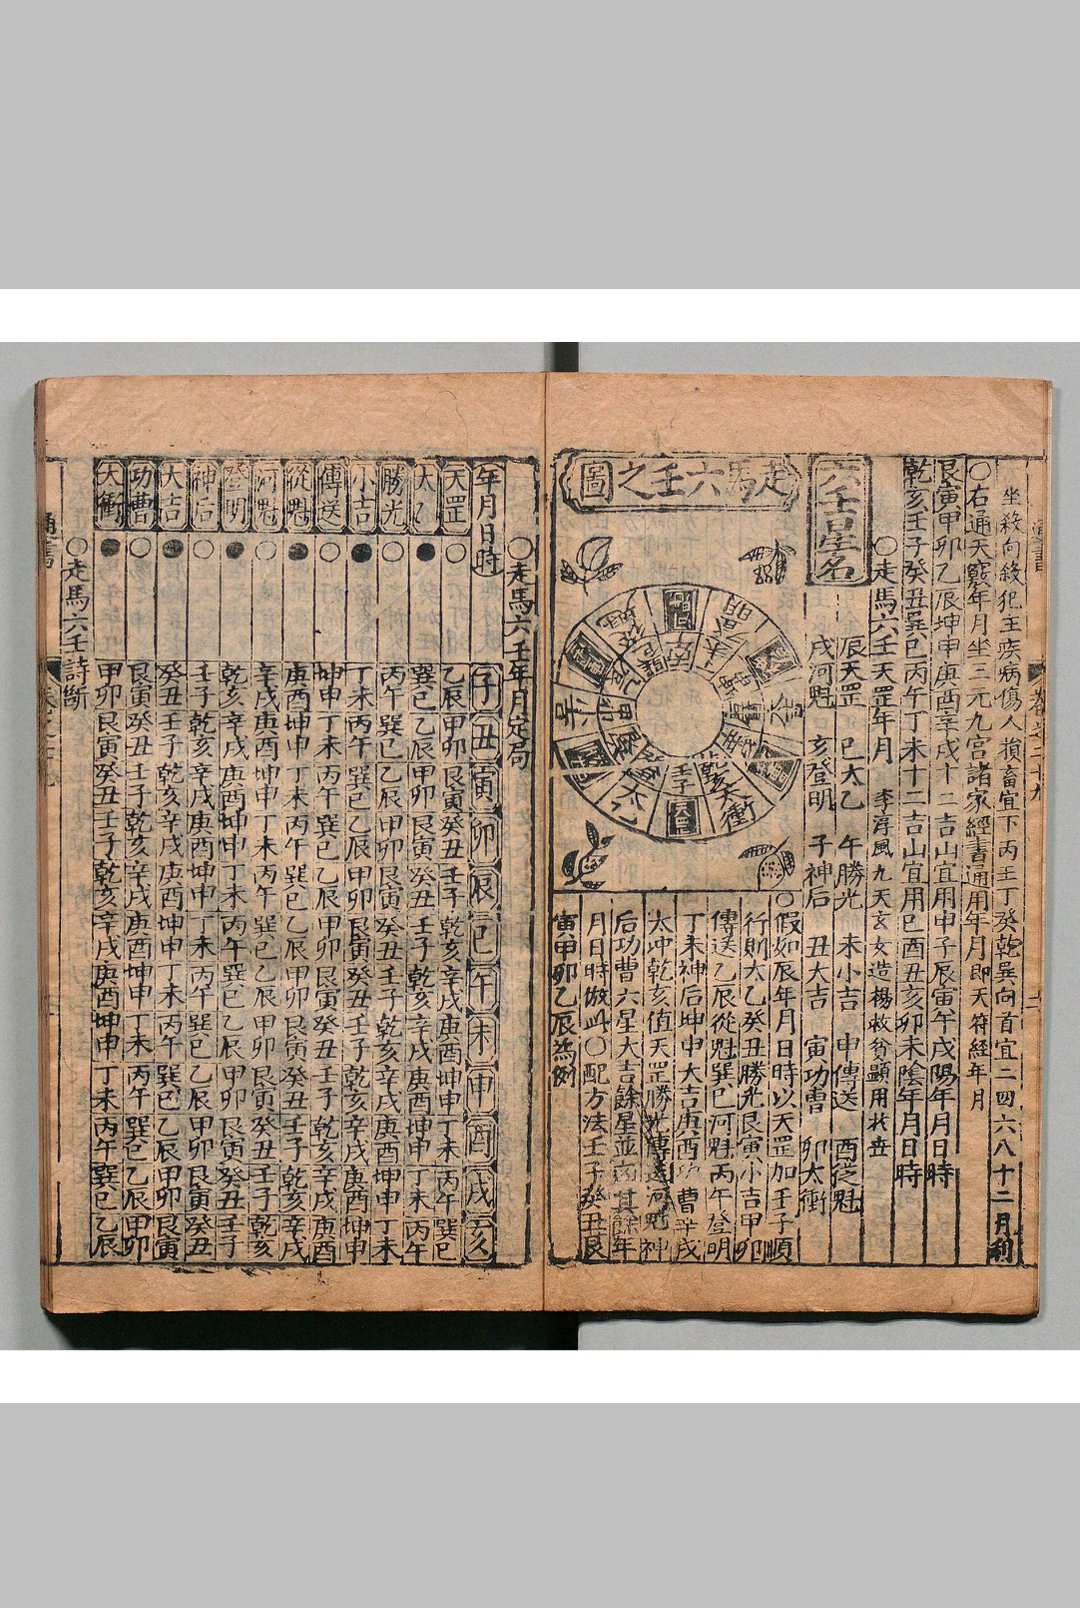 坐殺向殺犯主疾病傷人損畜宜下丙壬丁癸乾巽向首宜二四六八十二月利
〇右通天竅年月坐三元九宮諸家經書通用年月即天符經年月
艮寅甲卯乙辰坤申庚酉辛戌十二吉山宜用申子辰寅午戌陽年月日時
乾亥壬子癸丑巽巳丙午丁未十二吉山宜用巳酉丑亥卯未陰年月日時
〇走馬六壬天罡年月 李淳風九天玄女造楊救貧顯用於世
六壬吉星名
辰天罡 巳太乙 午勝光 未小吉 申傳送 酉從魁
戌河魁 亥登明 子神后 丑大吉 寅功曹 卯太衝
走馬六壬之圖
〇假如辰年月日時以天罡加壬子順
行則太乙癸丑勝光艮寅小吉甲卯
傳送乙辰從魁巽巳河魁丙午登明
丁未神后坤申大吉庚酉功曹辛戌
太冲乾亥值天罡勝光傳送河魁神
后功曹六星大吉餘星並凶其餘年
月日時倣此〇配方法壬子癸丑艮
寅甲卯乙辰為例
〇走馬六壬年月定局
年月日時 子丑寅卯辰巳午未申酉戌亥
天罡〇乙辰甲卯艮寅癸丑壬子乾亥辛戌庚酉坤申丁未丙午巽巳
太乙●巽巳乙辰甲卯艮寅癸丑壬子乾亥辛戌庚酉坤申丁未丙午
勝光〇丙午巽巳乙辰甲卯艮寅癸丑壬子乾亥辛戌庚酉坤申丁未
小吉●丁未丙午巽巳乙辰甲卯艮寅癸丑壬子乾亥辛戌庚酉坤申
傳送〇坤申丁未丙午巽巳乙辰甲卯艮寅癸丑壬子乾亥辛戌庚酉
從魁●庚酉坤申丁未丙午巽巳乙辰甲卯艮寅癸丑壬子乾亥辛戌
河魁〇辛戌庚酉坤申丁未丙午巽巳乙辰甲卯艮寅癸丑壬子乾亥
登明●乾亥辛戌庚酉坤申丁未丙午巽巳乙辰甲卯艮寅癸丑壬子
神后〇壬子乾亥辛戌庚酉坤申丁未丙午巽巳乙辰甲卯艮寅癸丑
大吉●癸丑壬子乾亥辛戌庚酉坤申丁未丙午巽巳乙辰甲卯艮寅
功曹〇艮寅癸丑壬子乾亥辛戌庚酉坤申丁未丙午巽巳乙辰甲卯
太衝●甲卯艮寅癸丑壬子乾亥辛戌庚酉坤申丁未丙午巽巳乙辰
〇走馬六壬詩斷